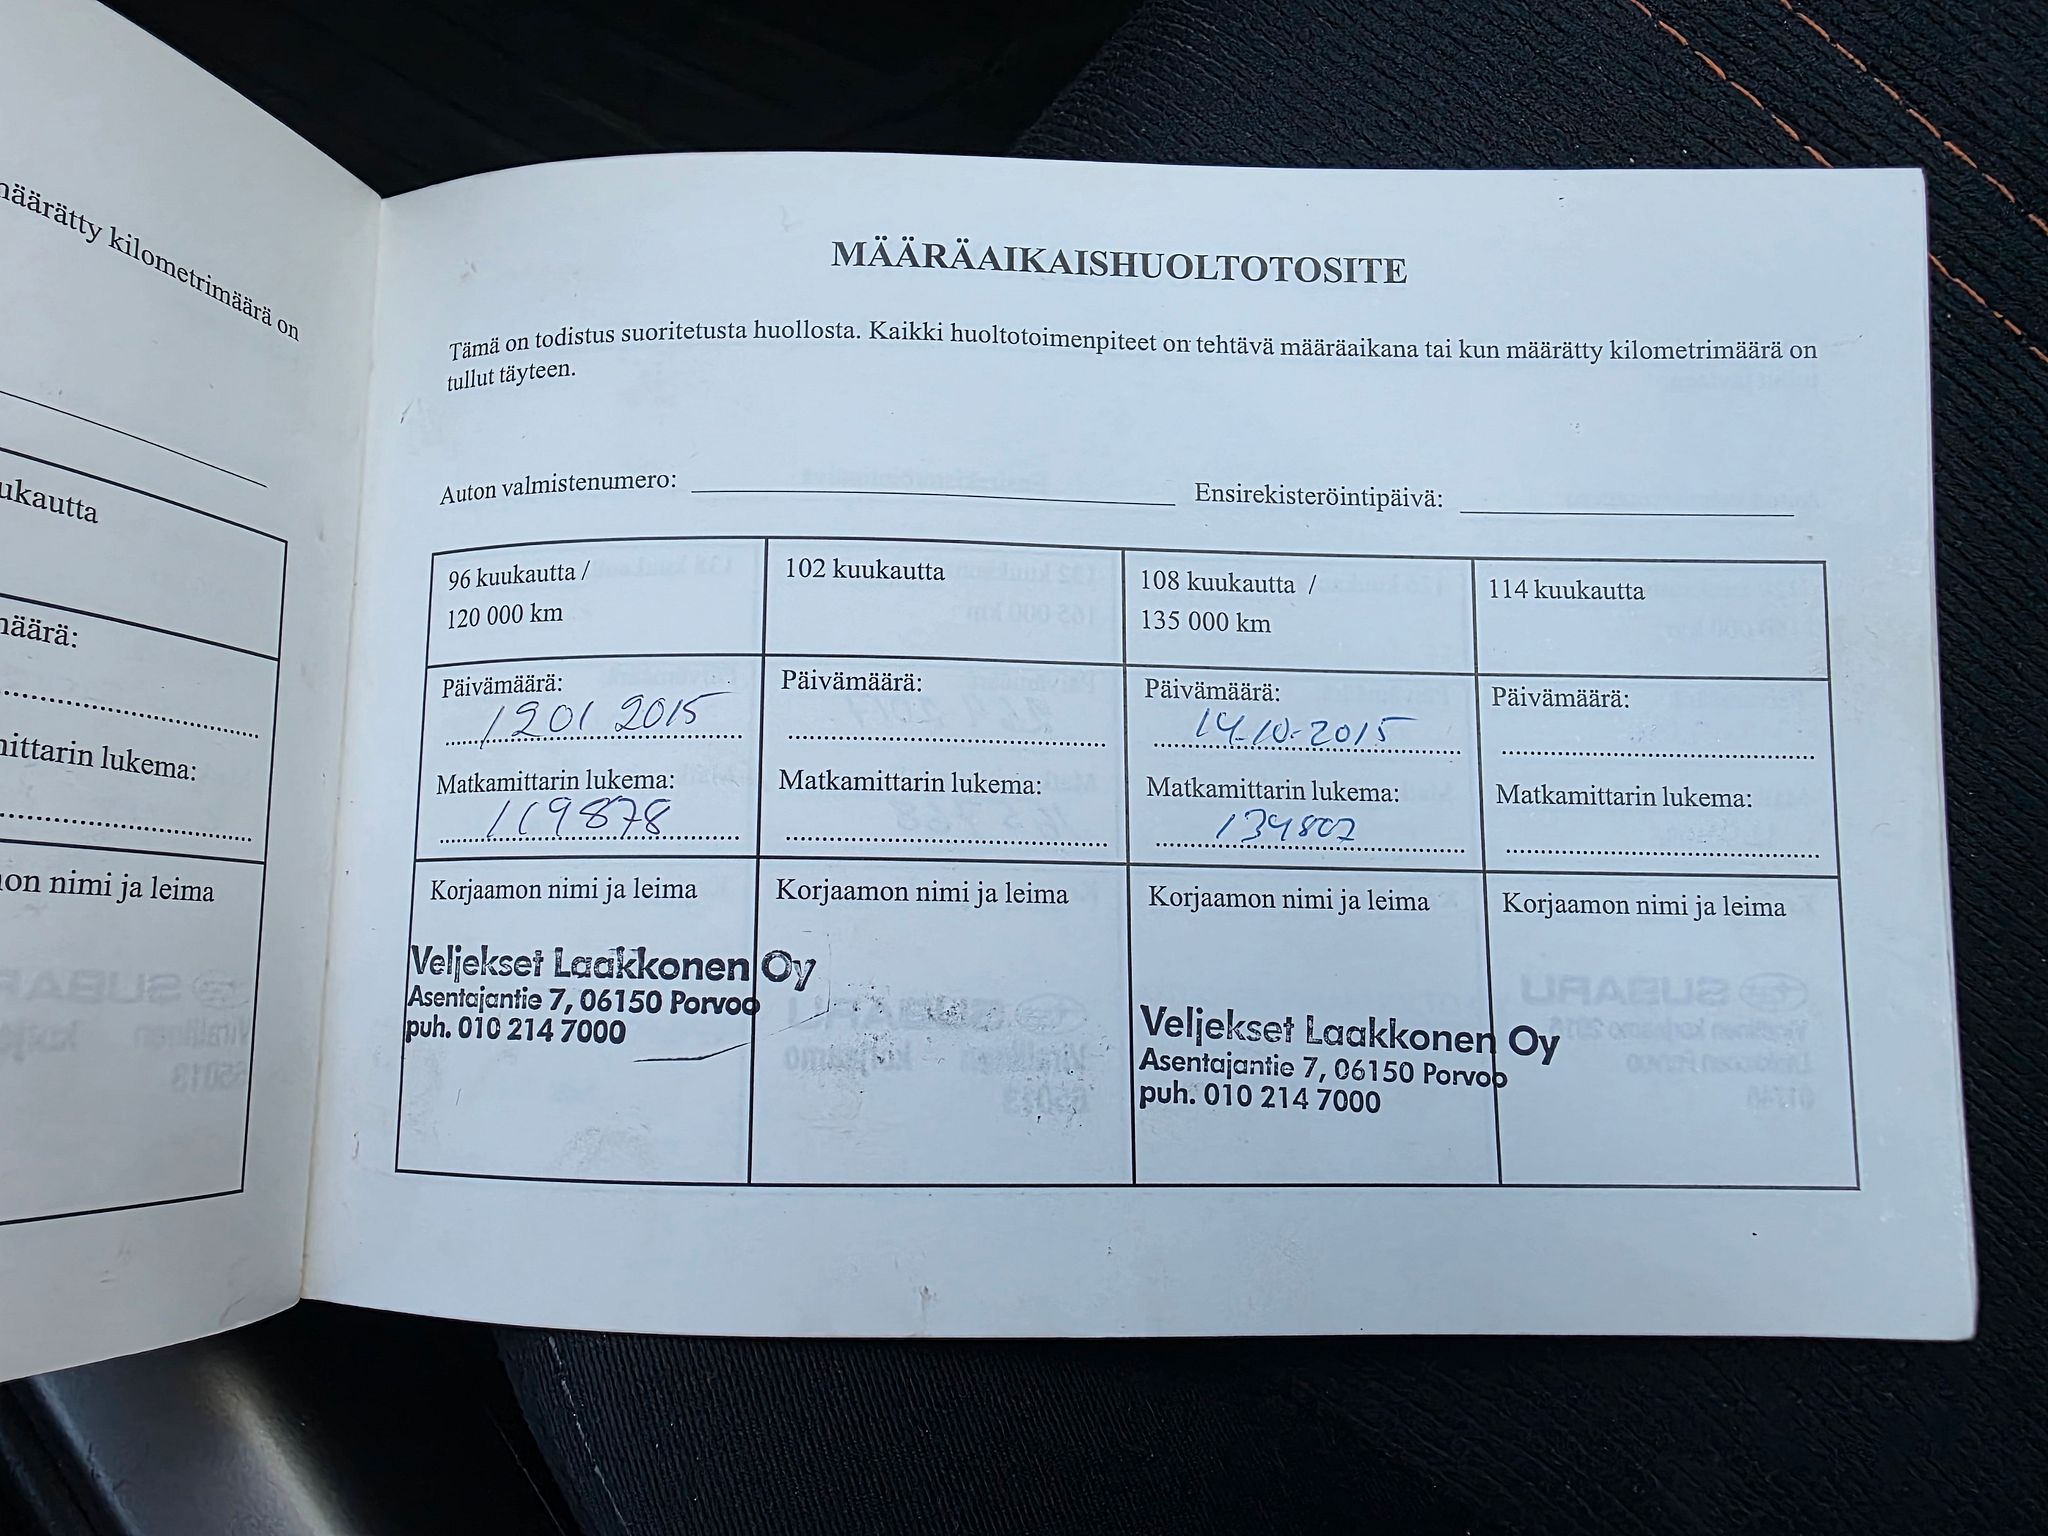 määrätty kilometrimäärä on
ukautta
määrä:
mittarin lukema:
on nimi ja leima
MÄÄRÄAIKAISHUOLTOTOSITE
Tämä on todistus suoritetusta huollosta. Kaikki huoltotoimenpiteet on tehtävä määräaikana tai kun määrätty kilometrimäärä on
tullut täyteen.
Auton valmistenumero: Ensirekisteröintipäivä:
96 kuukautta /
120 000 km
102 kuukautta
108 kuukautta /
135 000 km
114 kuukautta
Päivämäärä:
12 01 2015
Päivämäärä:
Päivämäärä:
14.10.2015
Päivämäärä:
Matkamittarin lukema:
119878
Matkamittarin lukema:
Matkamittarin lukema:
134807
Matkamittarin lukema:
Korjaamon nimi ja leima
Korjaamon nimi ja leima
Korjaamon nimi ja leima
Korjaamon nimi ja leima
Veljekset Laakkonen Oy
Asentajantie 7, 06150 Porvoo
puh. 010 214 7000
Veljekset Laakkonen Oy
Asentajantie 7, 06150 Porvoo
puh. 010 214 7000